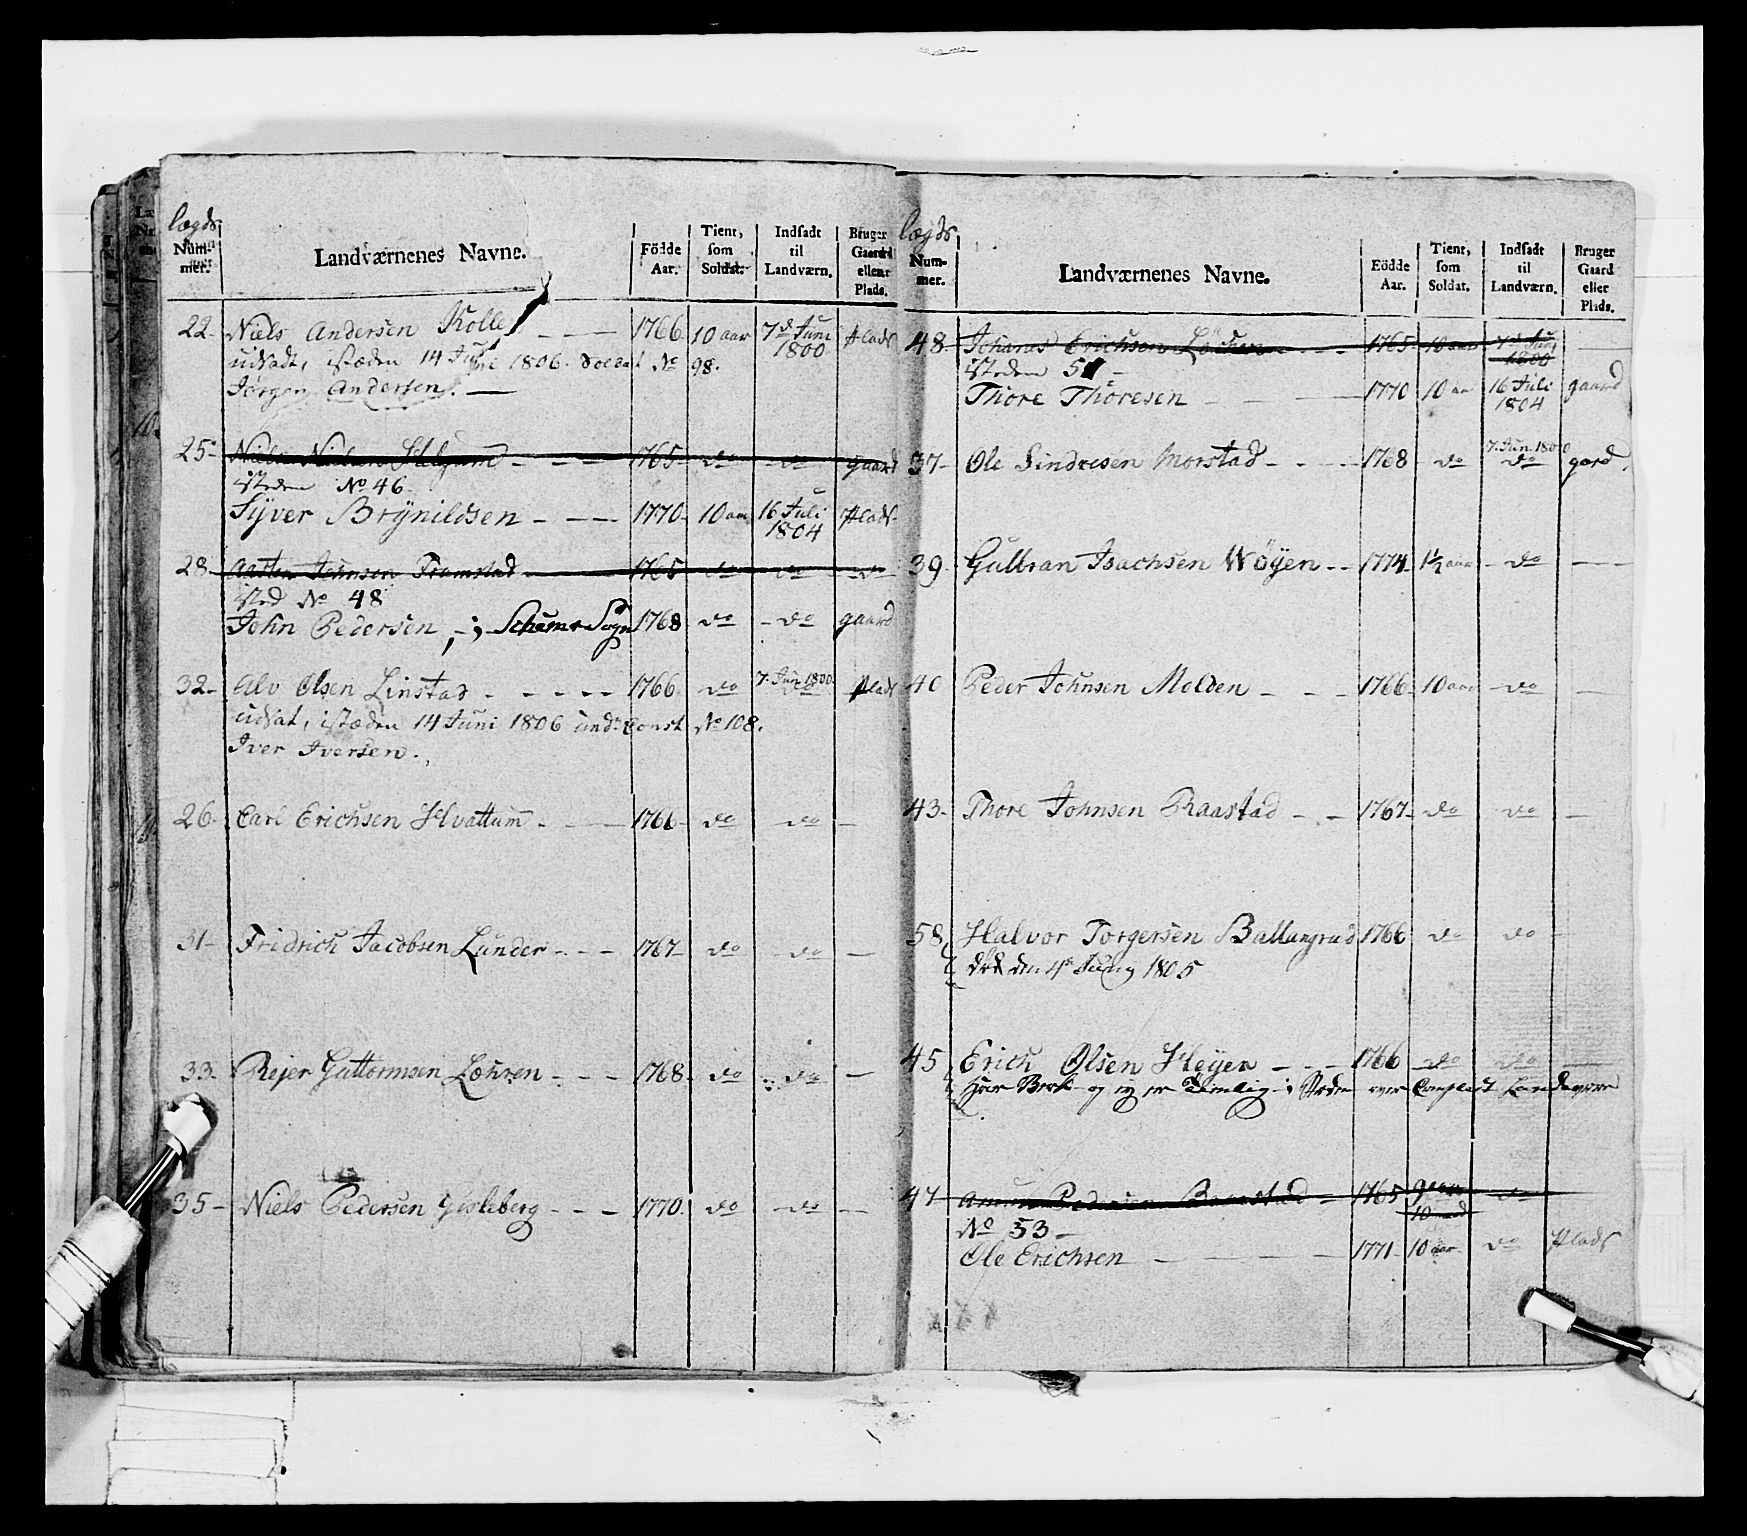 Lægds Num-mer. Landværnenes Navne. Födde Aar. Tient, som Soldat. Indsadt til Landværn. Bruger Gaard eller Plads.
22- Niels Andersen Kolle - - 1766 10 aar 7d Juni 1800 Plads
udsadt, istæden 14 Juni 1806. Soldat No 98.
Jörgen Andersen. -
25- Niels Nielsen - - - 1765- do - do gaard
isteden No 46.
Syver Brynildsen - - - - 1770- 10 aar 16 Juli 1804 Plads-
28- Johnsen Framstad 1765 do - do - do
isted No 48
John Pedersen, 1768 do - do gaard
32- Alv Olsen Linstad - - - - - 1766 do 7. Jun. 1800. do Plads
udsat, istæden 14 Juni 1806 und: Const No 108.
Iver Iversen.
26- Carl Erichsen Hvattum - - 1766- do - do -
31- Fridrich Jacobsen Lunder - - - 1767- do do -
33- Rejer Guttormsen Lohren - - - 1768- do - do -
35- Niels Pedersen Gisleberg - - - 1770. do - do -
Lægds Num-mer. Landværnenes Navne. Eödde Aar. Tient, som Soldat. Indsadt til Landværn. Bruger Gaard eller Plads.
48- Johanes Erichsen - - 1765- 10 aar 7d Juni 1800 -
isteden 51 -
Thore Thoresen - - - 1770 10 aar 16 Juli 1804 gaard
37- Ole Sindresen Morstad - - - - 1768 - do 7. Jun. 1800 do gard.
39- Gulbran Isachsen Wöyen - - 1774- 1½ aar - do -
40 Peder Johnsen Molden - - - 1766- 10 aar - do -
43- Thore Johnsen Raastad - - - 1767- do - do -
58 Halvor Torgersen Ballangrud 1766 do do -
död den 4de Juny 1805
45 Erich Olsen Heyen - - - 1766 do do -
Har og ey er i Landeværn
47 Pedersen - 1765 9 aar 10 maand do
No 53 -
Ole Erichsen - - - 1771- 10 aar- do Plads